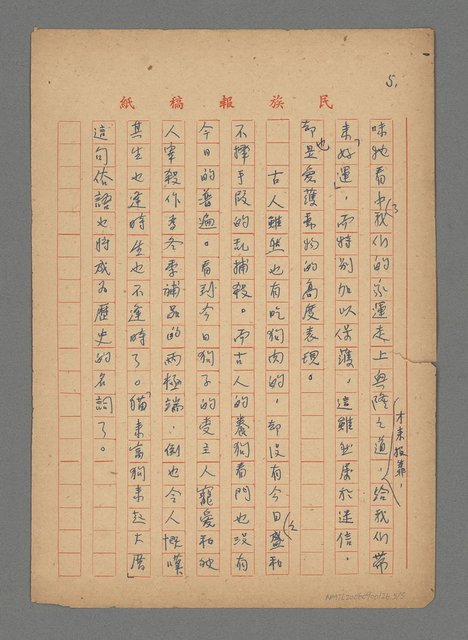 5.
民族報稿紙
味牠看中(了)我們的家運走上興隆之道,才來投靠,給我們帶
來「好運」,而特別加以保護,這雖然屬於迷信,
却也是愛護動物的高度表現。
古人雖然也有吃狗肉的,却沒有今日(之)盛和
不擇手段的乱捕殺。而古人的養狗看門也沒有
今日的普遍。看到今日狗子的受主人寵愛和被
人宰殺作為冬季補品的兩極端,倒也令人慨嘆
其生也逢時生也不逢時了。「猫來富狗來起大厝」
這句俗語也將成为歷史的名詞了。
NMTL20060400126 5/5